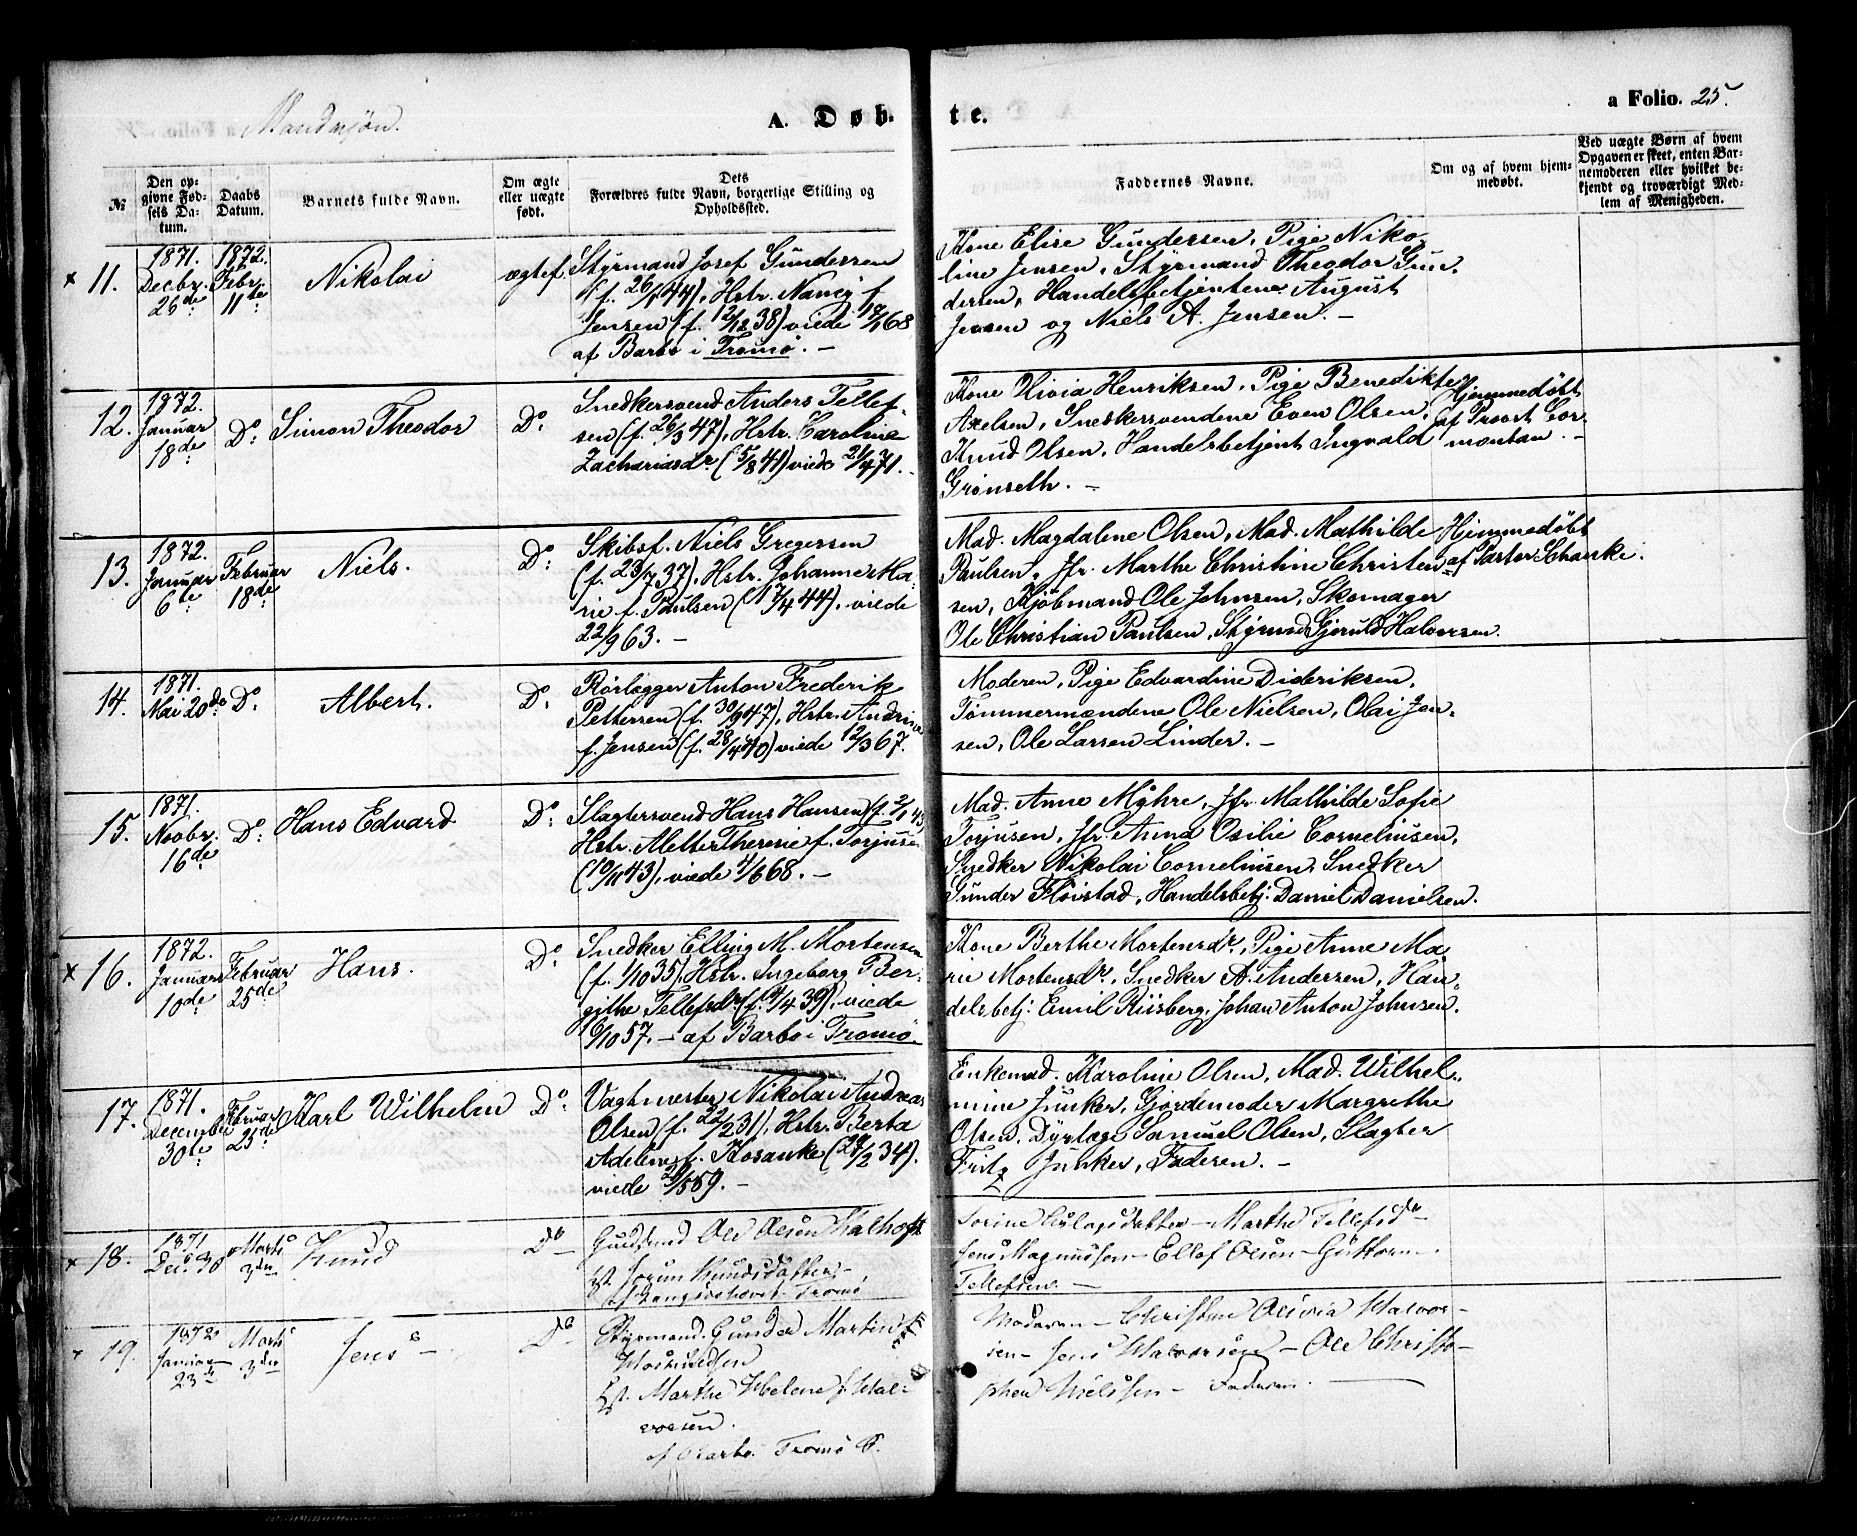 Mandkjøn.
A. Døbte.
a Folio. 25.
№
Den opgivne Fødsels Datum.
Daabs Datum.
Barnets fulde Navn.
Om ægte eller uægte født.
Dets Forældres fulde Navn, borgerlige Stilling og Opholdssted.
Faddernes Navne.
Om og af hvem hjemmedøbt.
Ved uægte Børn af hvem Opgaven er skeet, enten Barnemoderen eller hvilket bekjendt og troværdigt Medlem af Menigheden.
× 11.
1871.
Decbr.
26de
1872.
Febr.
11te
Nikolai
ægtef.
Styrmand Josef Gundersen
(f. 26/1 44), Hstr. Nancy f.
Jensen (f. 12/12 38) viede
af Barbo i Tromø. –
Kone Elise Gundersen, Pige Niko-
line Jensen, Styrmand Theodor Gun-
dersen, Handelsbetjentene August
Jensen og Niels A. Jensen. –
12.
1872.
Januar
18de
Do:
Simon Theodor
Do:
Snedkersvend Anders Tellef-
sen (f. 26/3 47), Hstr. Caroline
Zachariasdr. (5/8 41) viede 21/4 71. –
Kone Olivia Henriksen, Pige Benedikte
Axelsen, Snedkersvendene Even Olsen,
Knud Olsen, Handelsbetjent Ingvald
Grønseth. –
Hjemmedøbt
af Provst Cor-
montan. –
13.
1872.
Januar
6te
Februar
18de
Niels.
Do:
Skibsf. Niels Gregersen
(f. 23/7 37), Hstr. Johanne Ma-
rie f. Paulsen (17/4 44), viede
22/9 63. –
Mad. Magdalene Olsen, Mad. Mathilde
Paulsen, Jfr. Marthe Christine Christen-
sen, Kjøbmand Ole Johnsen, Skomager
Ole Christian Paulsen, Styrmd Gjeruld Halvorsen.
Hjemmedøbt
af Pastor Schanke.
14.
1871.
Mai 20de
Do:
Albert.
Do:
Rørlægger Anton Frederik
Pettersen (f. 30/9 47), Hstr. Andrine
f. Jensen (f. 28/4 40) viede 12/3 67.
Moderen, Pige Edvardine Dideriksen,
Tømmermændene Ole Nielsen, Olai Jen-
sen, Ole Larsen Linder. –
15.
1871.
Novbr.
16de
Do:
Hans Edvard
Do:
Slagtersvend Hans Hansen
Hstr. Alette Therese f. Torjusen
(10/11 43), viede 4/6 68. –
Mad. Anne Myhre, Jfr. Mathilde Sofie
Torjusen, Jfr. Anna Osilie Corneliusen,
Snedker Nikolai Corneliusen, Snedker
Gunder Fløistad, Handelsbetj: Daniel Danielsen.
× 16.
1872.
Januar
10de
Februar
25de
Hans.
Do:
Snedker Elling M. Mortensen
(f. 1/10 35), Hstr. Ingeborg Ber-
githe Tellefsdr. viede
57. – af Barbo i Tromø.
Kone Berthe Mortensdr., Pige Anne Ma-
rie Mortensdr., Snedker A. Andersen, Han-
delsbetj: Emil Riisberg, Johan Anton Johnsen.
17.
1871.
December
30te
Februar
25de
Karl Wilhelm
Do:
Vagtmester Nikolai Andreas
Olsen (f. 22/2 31), Hstr. Berta
Adelene f. Kosanke
viede
Enkemad. Karoline Olsen, Mad. Wilhel-
mine Junker, Gjordemoder Margrethe
Olsen, Dyrlæge Samuel Olsen, Slagter
Fritz Junker, Faderen. –
× 18.
1871
Dec. 30
Marts
3den
Knud
Do –
Ole Olsen
Hst. Jorun Knudsdatter –
Tromø
Aslagsdatter – Marthe Tellefsdr –
Jens Magnussen – Ellef Olsen – Guttorm
Tellefsen. –
× 19.
1872
Januar
23de
Marts
3den
Jens –
Do –
Styrmand Gunder Martin
Hst. Marthe Helene f. Hal-
vorsen.
af Barbo Tromø P.
Moderen – Christen Olivia Halvor-
sen – Jens Halvorsen – Ole Christo-
pher Nielssen – Faderen. –